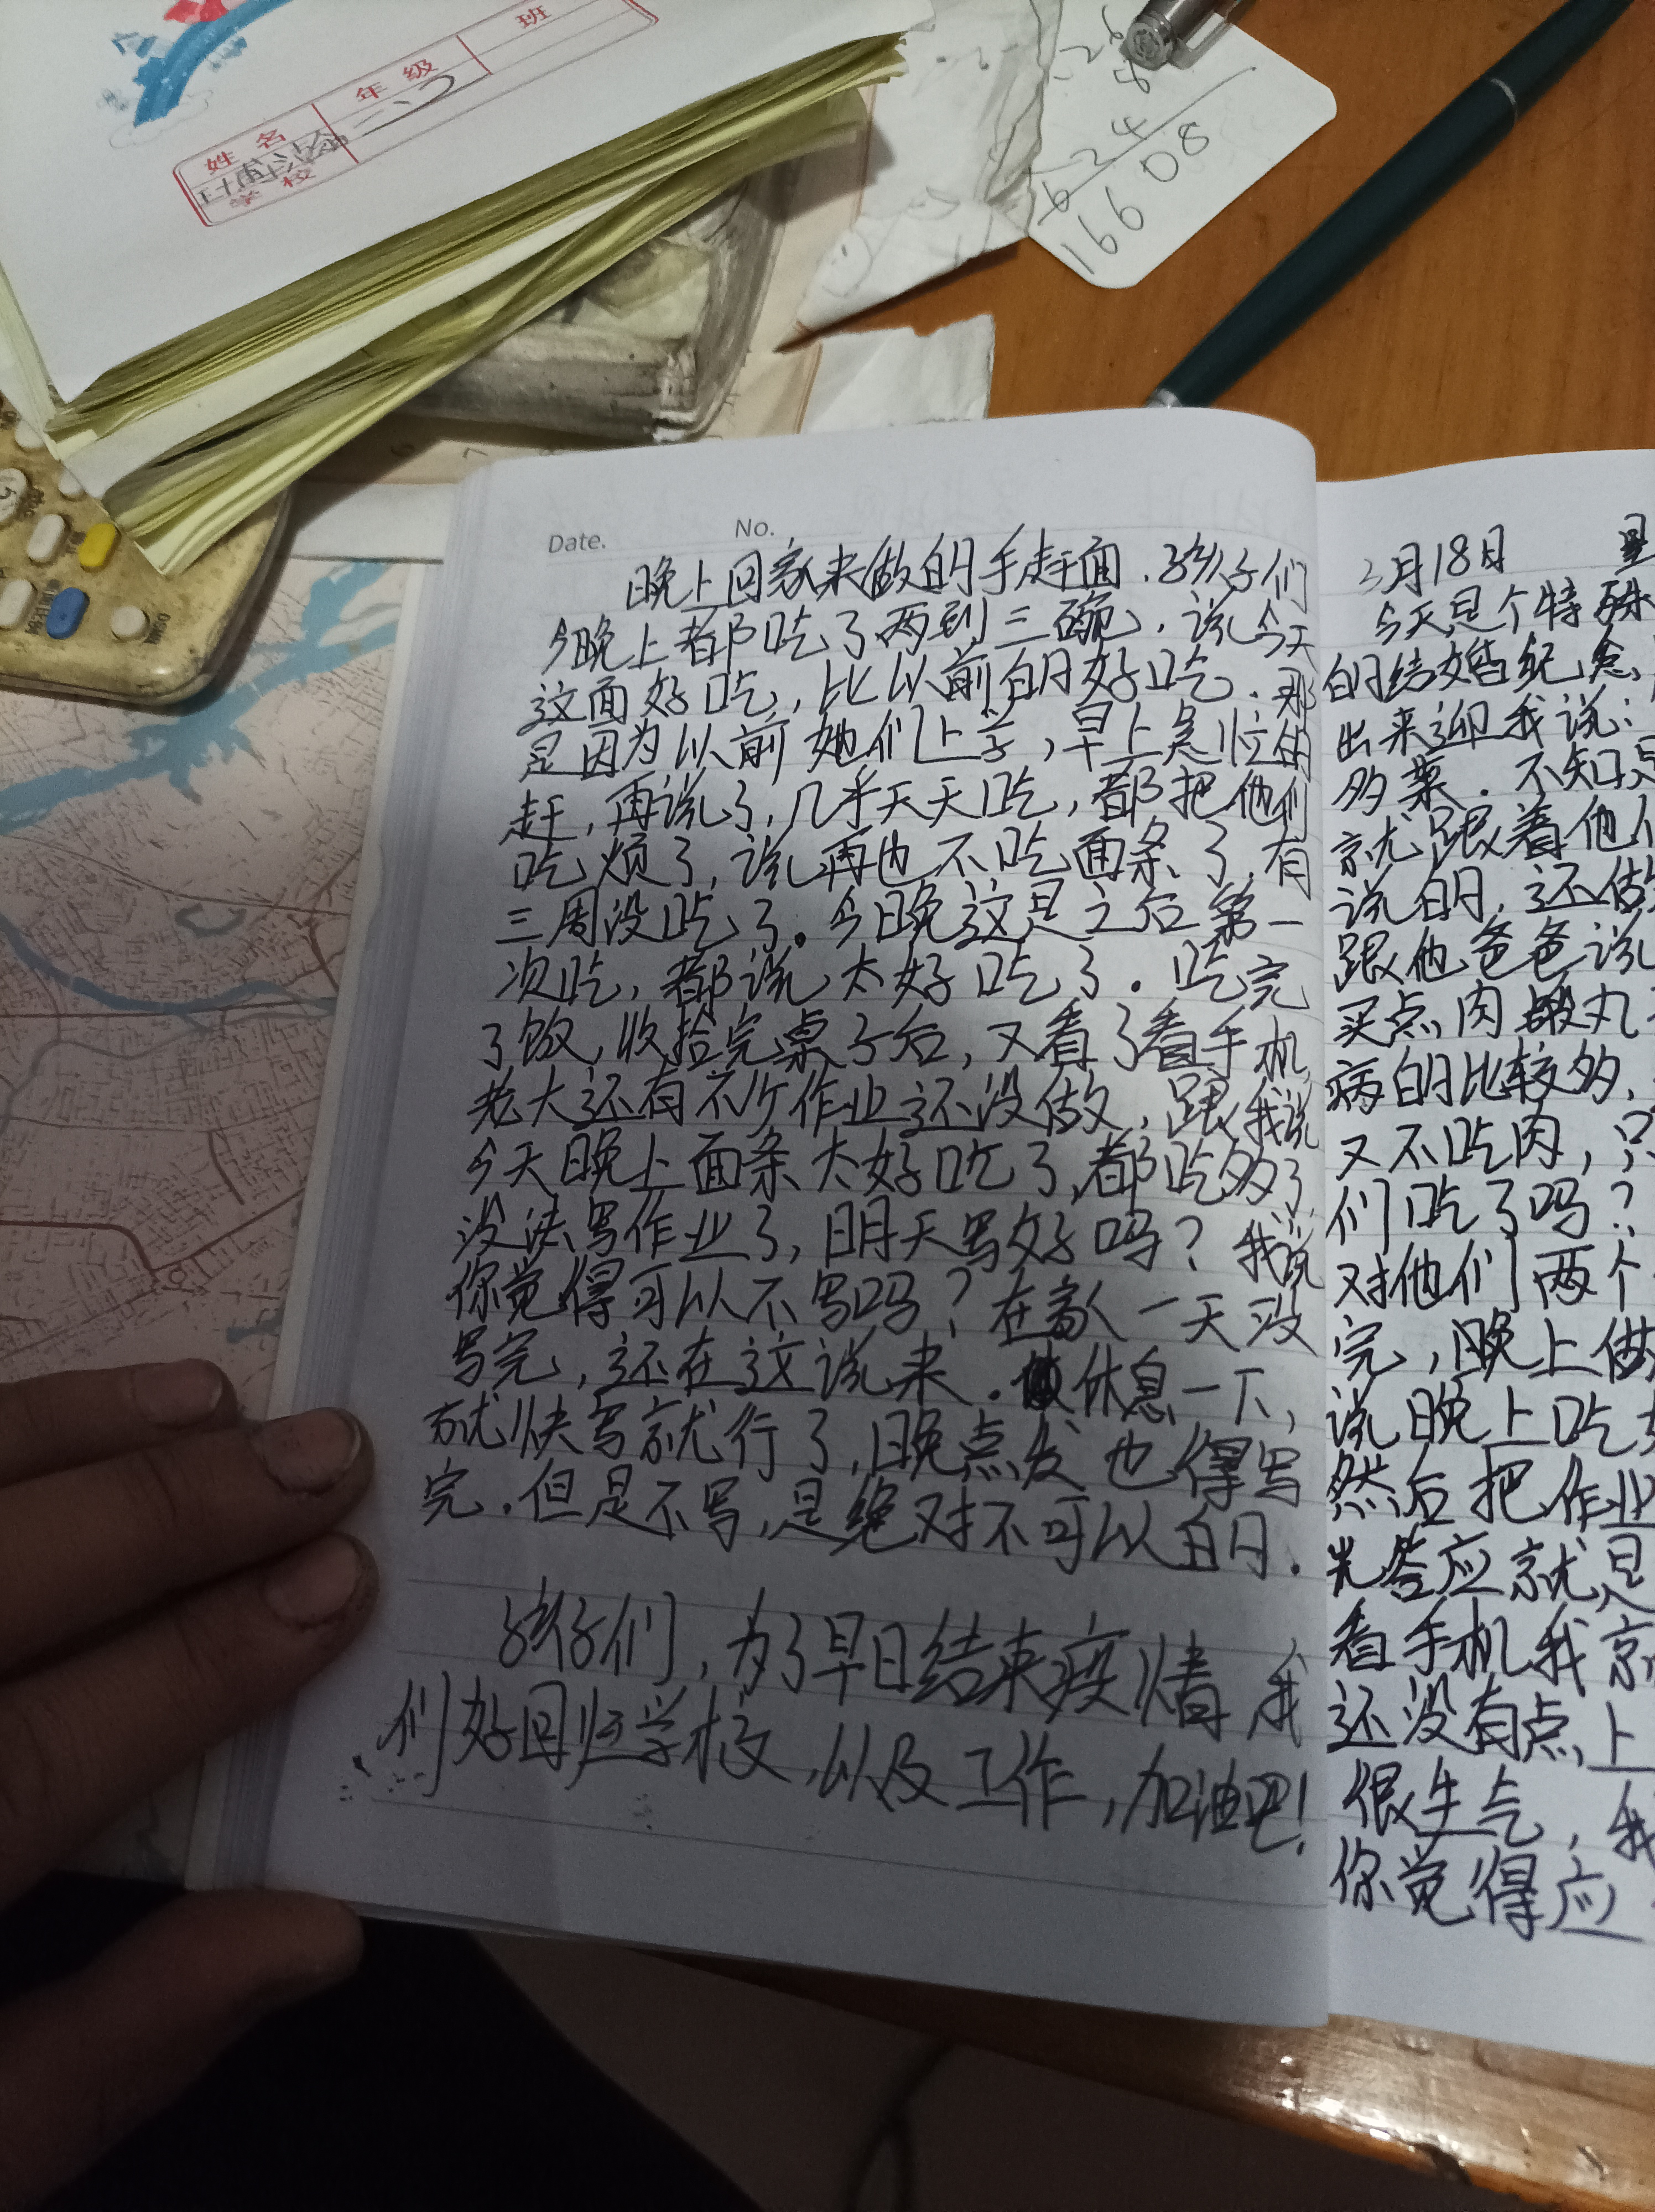 班
年级
姓名
三
学校
5
26
8
624
16608
Date. No.
晚上回家来做的手赶面.孩子们
今晚上都吃了两到三碗,说今天
这面好吃,比以前的好吃.那
是因为以前她们上学,早上急忙的
赶,再说了,几乎天天吃,都把他们
吃烦了,说再也不吃面条了,有
三周没吃了。今晚这是之后第一
次吃,都说太好吃了.吃完
了饭,收拾完桌子后,又看了看手机
老大还有不少作业还没做,跟我说
今天晚上面条太好吃了,都吃多了
没法写作业了,明天写好吗?我说
你觉得可以不写吗?在家一天没
写完,还在这说来.休息一下,
就快写就行了,晚点发也得写
完.但是不写,是绝对不可以的.
孩子们,为了早日结束疫情我
们好回归学校,以及工作,加油吧!
3月18日 星
今天是个特殊
的结婚纪念
出来迎我说:
多菜.不知是
就跟着他们
说的,还做
跟他爸爸说
买点肉丸
病的比较多,
又不吃肉,只
们吃了吗?
对他们两个
完,晚上做
说晚上吃
然后把作业
光答应就是
看手机我就
还没有点上
很生气,我
你觉得应